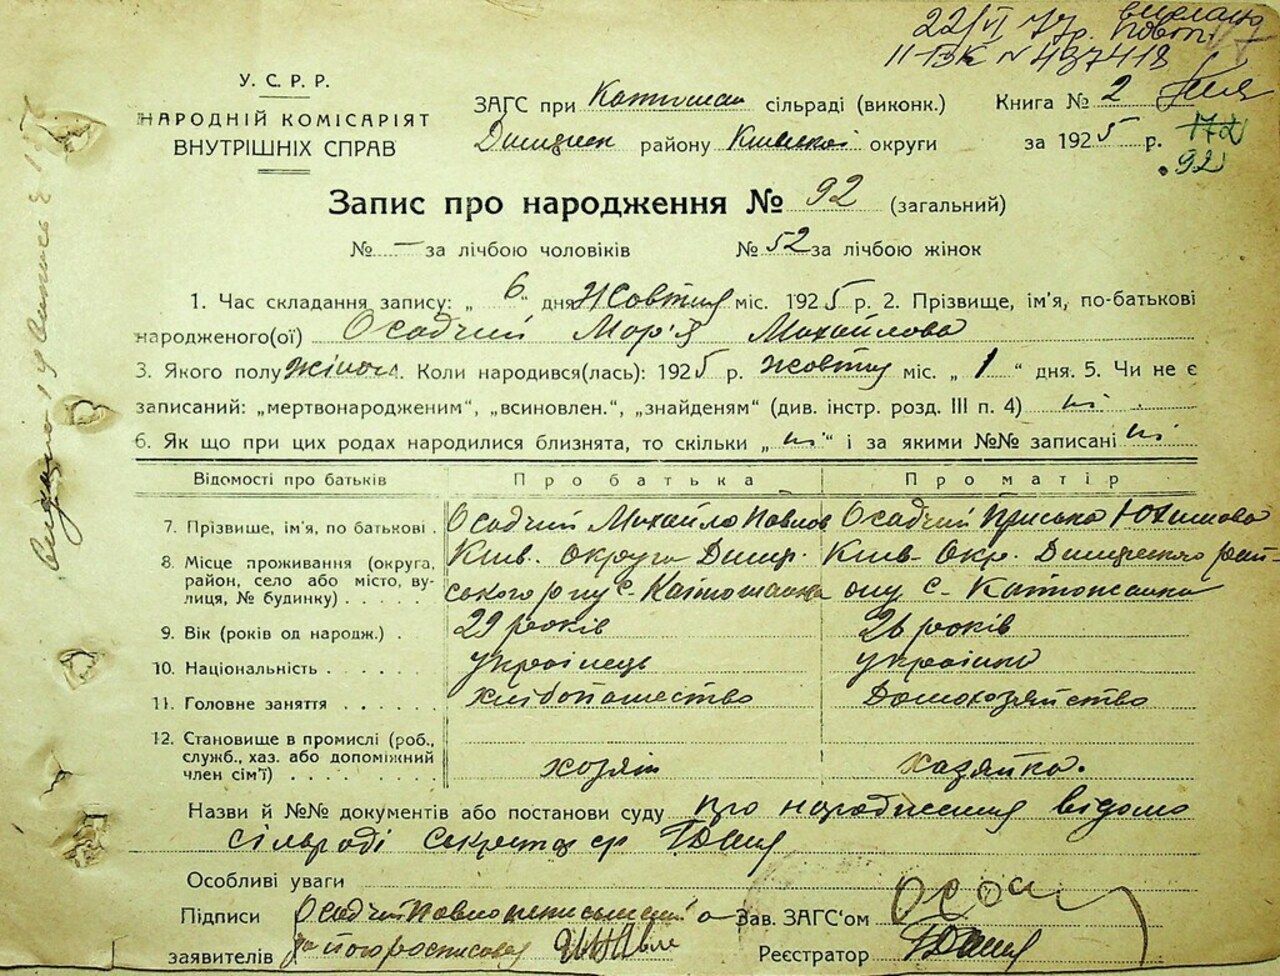 22/VI 77 р. Повт.
II-БК № 437418
У. С. Р. Р.
НАРОДНІЙ КОМІСАРІЯТ
ВНУТРІШНІХ СПРАВ
ЗАГС при Катюжан сільраді (виконк.)
Димирськ району Київської округи
Книга № 2
за 1925 р.
172
92
Запис про народження № 92 (загальний)
№ — за лічбою чоловіків № 52 за лічбою жінок
1. Час складання запису: „ 6 “ дня Жовтня міс. 1925 р. 2. Прізвище, ім'я, по-батькові
народженого(ої) Осадчий Мар'я Михайлова
3. Якого полу жіноч. Коли народився(лась): 1925 р. жовтня міс. „ 1 “ дня. 5. Чи не є
записаний: „мертвонародженим“, „всиновлен.“, „знайденям“ (див. інстр. розд. III п. 4) ні
6. Як що при цих родах народилися близнята, то скільки „ ні “ і за якими №№ записані ні
Відомості про батьків Про батька Про матір
7. Прізвище, ім'я, по батькові . Осадчий Михайло Павлов Осадчий Приська Юхимова
8. Місце проживання (округа, район, село або місто, вулиця, № будинку) . . . . . Київ. округа Димирського р-ну с. Катюжанка Київ. Окр. Димирського району с. Катюжанка
9. Вік (років од народж.) . 29 років 26 років
10. Національність . . . . . . українець українка
11. Головне заняття . . . . . . хлібопашество Домохозяйство
12. Становище в промислі (роб., служб., хаз. або допоміжний член сім'ї) . . . . . . . . хозяїн хазяйка.
Назви й №№ документів або постанови суду про народження відомо
сільраді секретар
Особливі уваги
Підписи Осадчий Павло неписьменний а Зав. ЗАГС'ом Осад
заявителів за його росписався Реєстратор